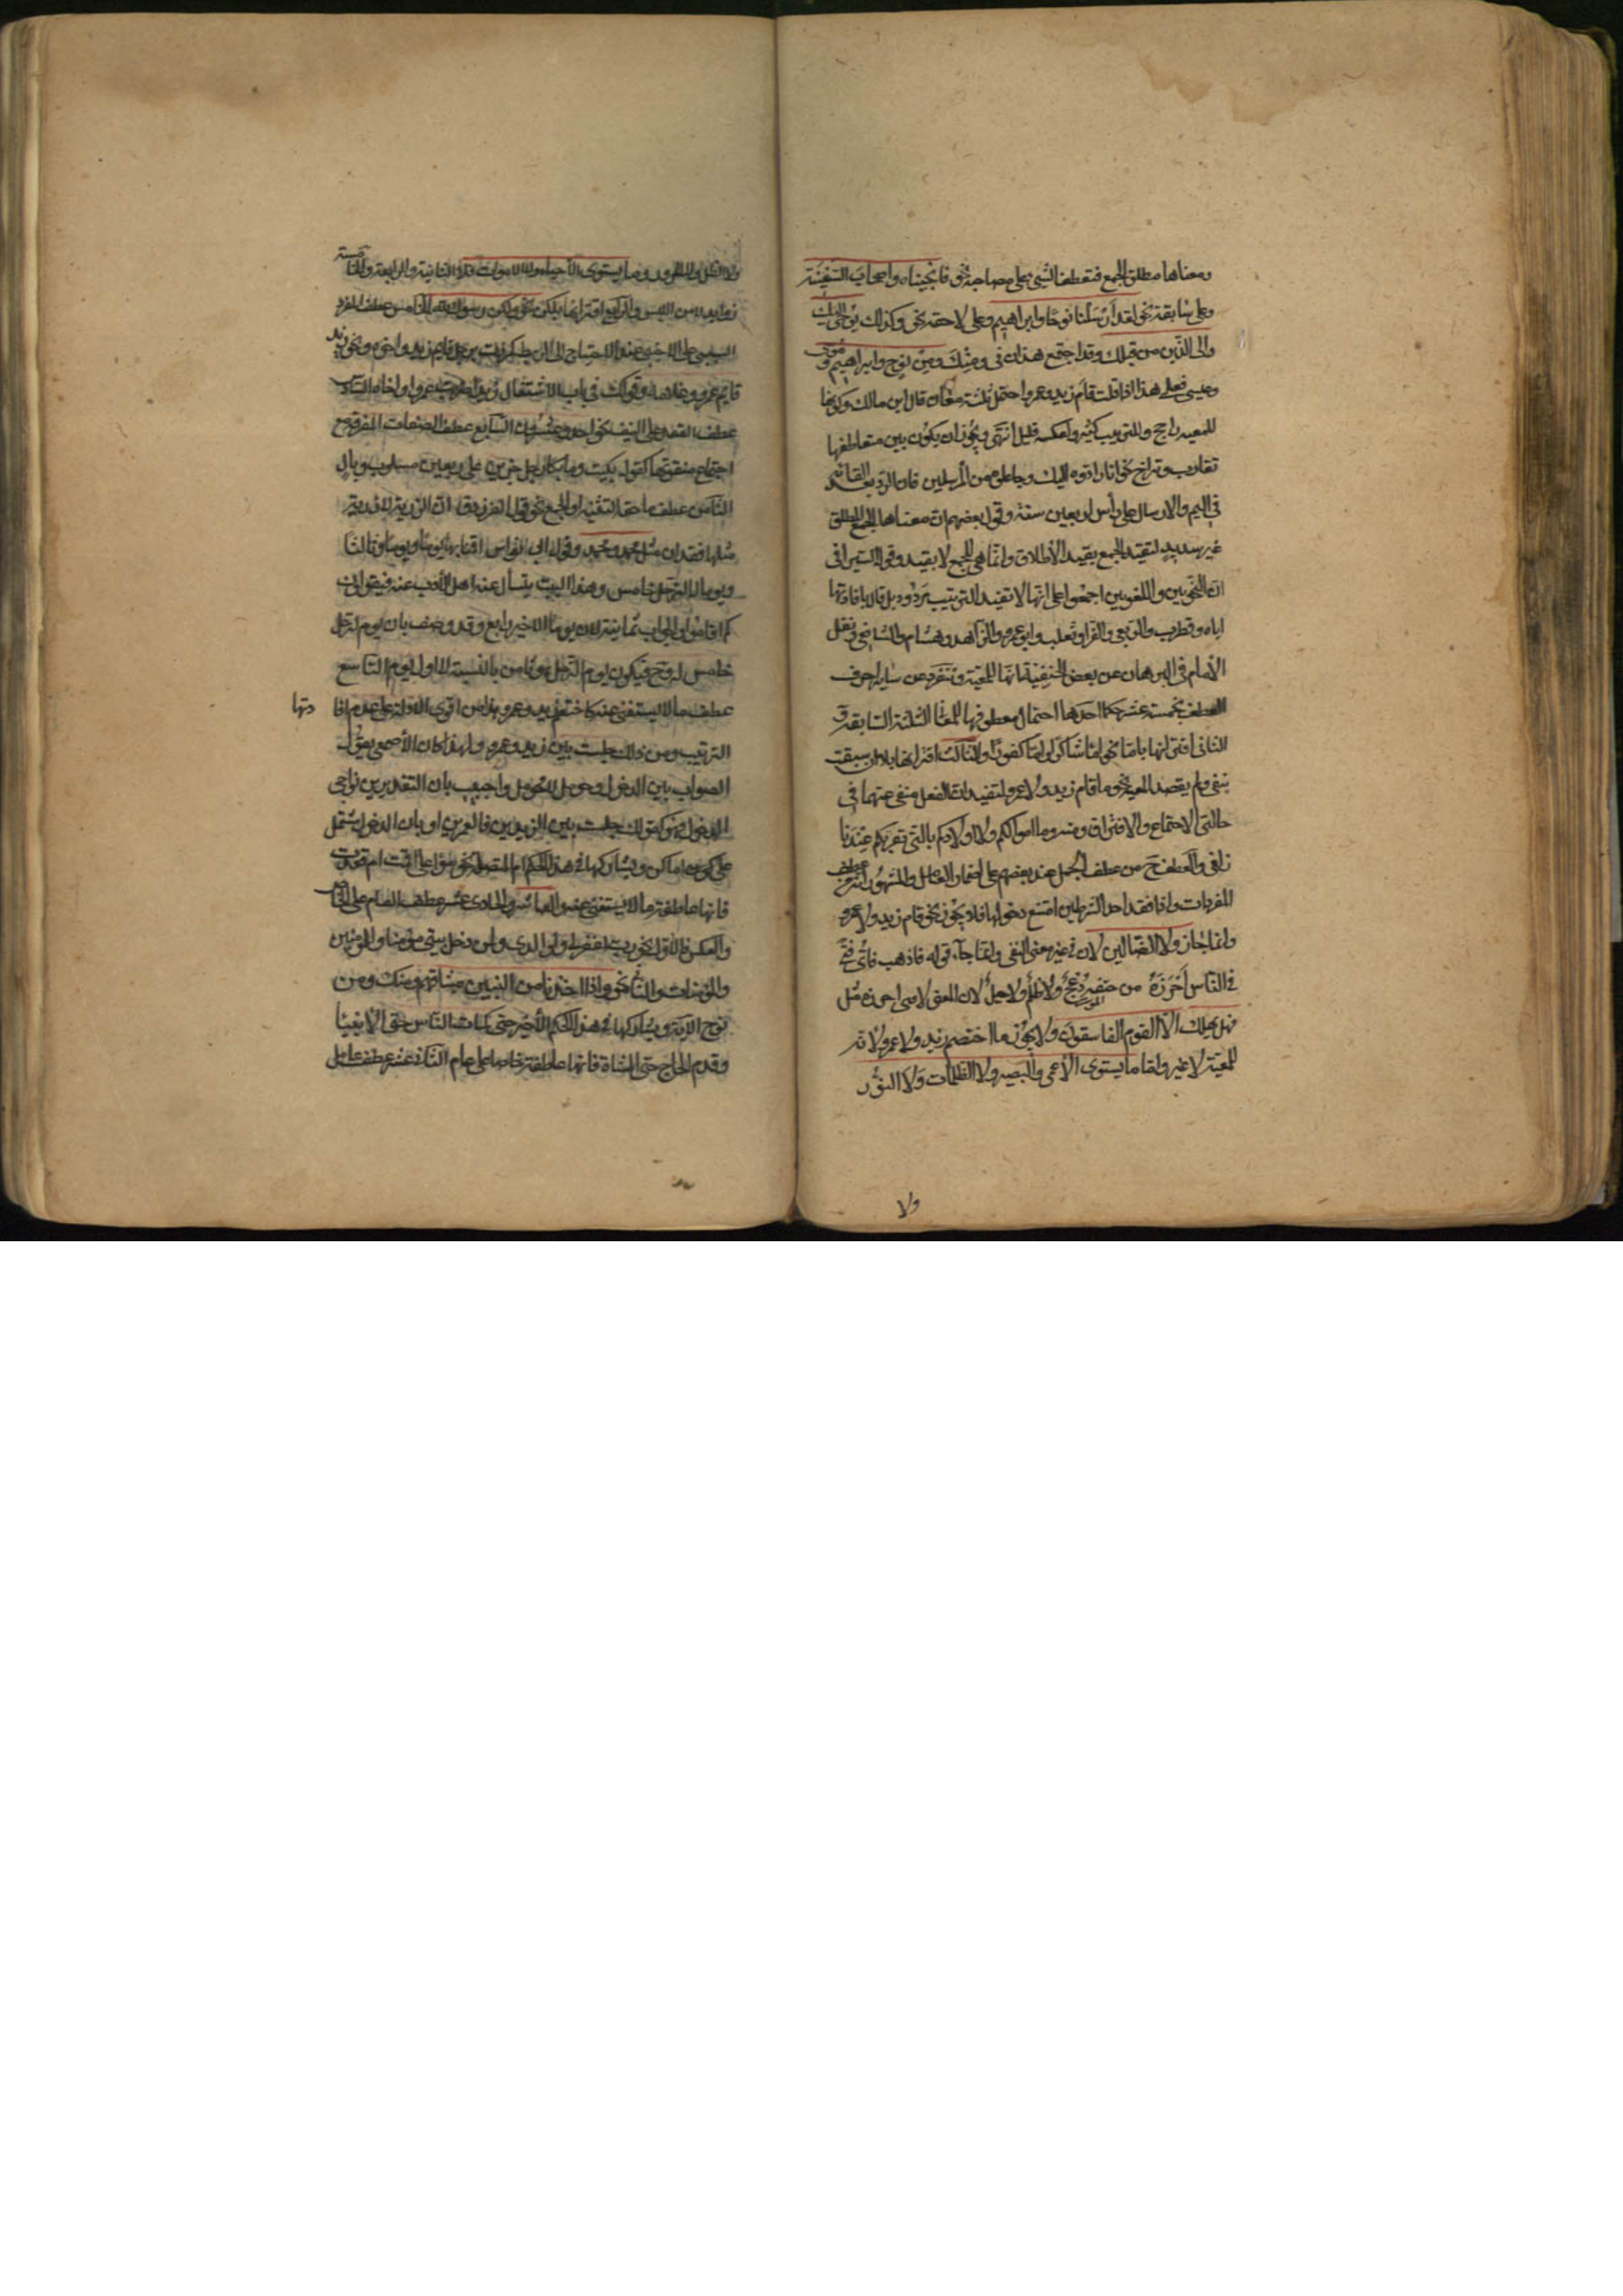 ومعناها مطلق الجمع فتعطف الشئ على مصاحبه نحو فانجيناه واصحاب السفينة
وعلى سابقه نحو لقد ارسلنا نوحا وابراهيم وعلى لاحقه نحو وكذلك يوحى اليك
والى الذين من قبلك وقد اجتمع هذان فى ومنك ومن نوح وابراهيم وموسى
وعيسى فعلى هذا اذا قلت قام زيد وعمرو احتمل ثلثة معان قال ابن مالك وكونها
للمعية راجح وللترتيب كثير ولعكسه قليل انتهى ويجوز ان يكون بين متعاطفيها
تقارب وتراخ نحو انا رادوه اليك وجاعلوه من المرسلين فان الرد بعيد القائه
فى اليم والارسال على رأس اربعين سنة وقول بعضهم ان معناها الجمع المطلق
غير سديد لتقييد الجمع بقيد الاطلاق وانما هى للجمع لا بقيد وقول السيرافى
ان النحويين واللغويين اجمعوا على انها لا تفيد الترتيب مردود بل قال بافادتها
اياه قطرب والربعى والفرا وثعلب وابو عمرو الزاهد وهشام والشافعى ونقل
الامام فى البرهان عن بعض الحنفية انها للمعية وتنفرد عن ساير احرف
العطف بخمسة عشر حكما احدها احتمال معطوفها للمعانى الثلثة السابقة و
الثانى اقترانها باما نحو اما شاكرا واما كفورا والثالث اقترانها بلا ان سبقت
بنفى ولم يقصد المعية نحو ما قام زيد ولا عمرو لتفيد ان الفعل منفى عنهما فى
حالتى الاجتماع والافتراق ومنه وما اموالكم ولا اولادكم بالتى تقربكم عندنا
زلفى والعطف ح من عطف الجمل عند بعضهم على اضمار العامل والمشهور انه من عطف
المفردات واذا فقد احد الشرطين امتنع دخولها فلا يجوز نحو قام زيد ولا عمرو
وانما جاز ولا الضالين لان فى غير معنى النفى وانما جاز قوله فاذهب فأى فتى
فى الناس احرزه من حتفه ظلم دعج ولا جبل لان المعنى لا فتى احرزه مثل
فهل يهلك الا القوم الفاسقون ولا يجوز ما اختصم زيد ولا عمرو لانه
للمعية لا غير واما ما يستوى الاعمى والبصير ولا الظلمات ولا النور
ولا
ولا الظل ولا الحرور وما يستوى الاحياء ولا الاموات فلا الثانية والرابعة والخامسة
زوايد لامن اللبس والرابع اقترانها بلكن نحو ولكن رسول الله الخامس عطف المفرد
السببى على الاجنبى عند الاحتياج الى الربط كمررت برجل قايم زيد واخوه ونحو زيد
قايم عمرو وغلامه وقولك فى باب الاشتغال زيدا ضربت عمروا واخاه السادس
عطف العقد على النيف نحو احد وعشرون السابع عطف الصفات المفرقة مع
اجتماع منعوتها كقوله بكيت وما بكا رجل حزين على ربعين مسلوب وبال
الثامن عطف ما حقه التثنية او الجمع نحو قول الفرزدق ان الرزية لا رزية
مثلها فقدان مثل محمد ومحمد وقول ابى نواس اقمنا بها يوما ويوما وثالثا
ويوما له يوم الترحل خامس وهذا البيت يتسأل عنه اهل الادب عنه فيقولون
كم اقاموا والجواب ثمانية لان يوما الاخير رابع وقد وصف بان يوم الترحل
خامس له و ح فيكون يوم الترحل هو ثامن بالنسبة الى اول يوم التاسع
عطف ما لا يستغنى عنه كاختصم زيد وعمرو وهذا من اقوى الادلة على عدم افا
دتها
الترتيب ومن ذلك جلست بين زيد وعمرو ولهذا كان الاصمعى يقول
الصواب بين الدخول وحومل لا فحومل واجيب بان التقدير بين نواحى
الدخول فهو كقولك جلست بين الزيدين فالعمرين او بان الدخول يشتمل
على اماكن وتشاركها فى هذا الحكم ام المتصلة نحو سوا على اقمت ام قعدت
فانها عاطفة ما لا يستغنى عنه والعاشر والحادى عشر عطف العام على الخاص
والعكس فالاول نحو رب اغفر لى ولوالدى ولمن دخل بيتى مؤمنا وللمؤمنين
والمؤمنات والثانى نحو واذ اخذنا من النبيين ميثاقهم ومنك ومن
نوح الاية ويشاركها فى هذا الحكم الاخير حتى كمات الناس حتى الانبيا
وقدم الحاج حتى المشاة فانها عاطفة خاصا على عام الثانى عشر عطف عامل